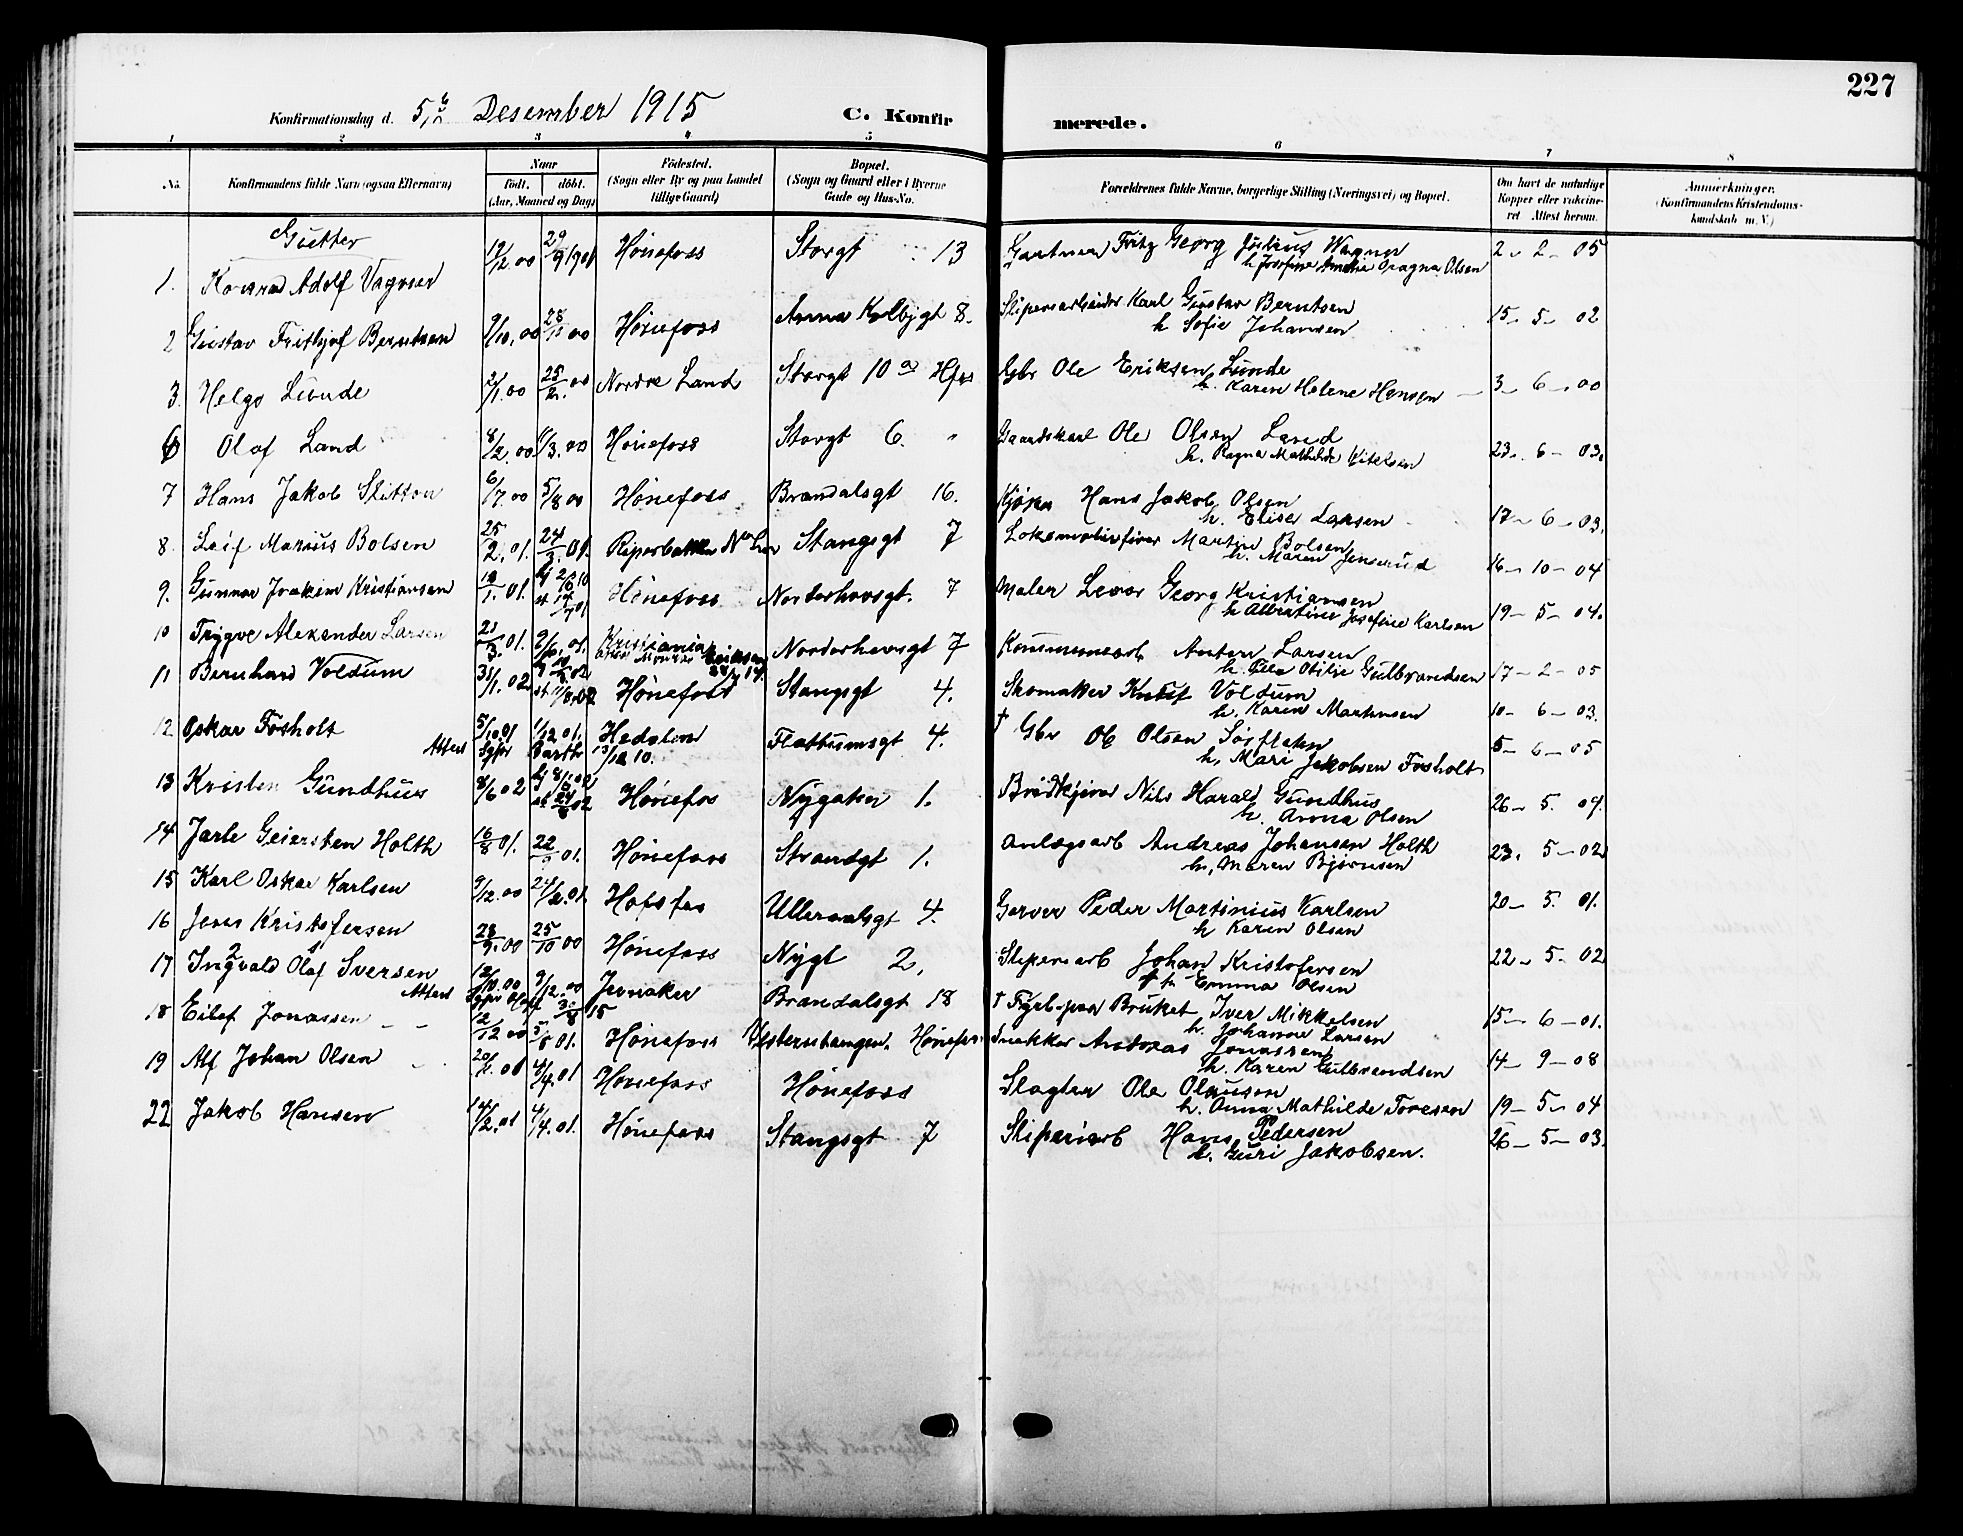 227
Konfirmationsdag d. 5te Desember 1915 C. Konfirmerede.
1 2 3 4 5 6 7 8
No. Konfirmandens fulde Navn (ogsaa Efternavn) Naar født. døbt. (Aar, Maaned og Dag) Födested. (Sogn eller By og paa Landet tillige Gaard) Bopæl. (Sogn og Gaard eller i Byerne Gade og Hus-No. Forældrenes fulde Navne, borgerlige Stilling (Næringsvei) og Bopæl. Om havt de naturlige Kopper eller vaccineret Attest herom. Anmærkninger. (Konfirmandens Kristendomskundskab m. V.)
Gutter
1. Konrad Adolf Vagner 12/12 00 29/9 1901 Hönefoss Storgt 13 Gartner Fritz Georg Julius Wagner 2 - 2 - 05
h. Josefine Amalie Dragna Olsen
2 Gustav Fritjof Berntsen 9/10.00 28/10 00 Hönefoss Anna Kolbjgt 8. Sliperiarbeider Karl Gustav Berntsen 15 - 5 - 02
h Sofie Johansen
3. Helge Lunde 2/1.00 25/2.00 Nordre Land Storgt 10 a Hfos Gbr Ole Eriksen Lunde 3 - 6 - 00
h. Karen Helene Hansen
6 Olaf Land 8/2.00 4/3.00 Hönefoss Storgt 6. " Gaardskarl Ole Olsen Land 23 - 6 - 03.
h. Ragna Mathilde Kittelsen
7 Hans Jakob Slitton 6/7.00 5/8 00 Hönefoss Brandalsgt 16. Kjører Hans Jakob Olsen 17 - 6 - 03.
h. Elise Larsen
8. Leif Marius Bolsen 25/2.01. 24/3 01. Stangsgt 7 Lokomotivfirer Martin Bolsen 16 - 10 - 04
h. Maren Jenserud
9. Gunnar Joakim Kristiansen 19/1.01. Hönefoss Norderhovsgt. 7 Maler Georg Kristiansen 19 - 5 - 04.
h Albertine Josefine Karlsen
10 Trygve Alexander Larsen 21/3.01. 2/6.01. Kristiania Norderhovsgt 7 Kommunearb Anton Larsen 17 - 2 - 05
h. Otilie Gulbrandsen
11 Bernhard Voldum 31/1.02 Hönefoss Stangsgt 4. Skomaker Voldum 10 - 6 - 03.
h. Karen Martinsen
12 Oskar Fosholt 5/10.01 1/12 01. Hedalen Flattumsgt 4. † Gbr Ole Olsen 5 - 6 - 05
Attest 13/12 10. h, Mari Jakobsen Fosholt
13 Kristen Gundhus 8/6 02 Hönefos Nygaten 1. Brödkjører Nils Harald Gundhus 26 - 5. 04.
h. Anna Olsen
14 Jarle Geirsten Holth 16/8 01. 22/9 01. Hönefoss Strandgt 1. Anlægsarb Andreas Johansen Holth 23. 5 - 02
h, Maren Bjørnsen
15 Karl Oskar Karlsen 9/12.00 24/2.01. Hofsfos Ulleraalsgt 4. Garver Peder Martinius Karlsen 20 - 5. 01.
h Karen Olsen
16 Jens Kristofersen 23/9.00 25/10 00 Hönefoss Nygt 2. Sliperiarb Johan Kristofersen 22 - 5 - 02
h Emma Olsen
17 Ingvald Olaf Iversen 12/10.00 9/12.00 Jevnaker Brandalsgt 18 † Fyrb. paa Bruket Iver Mikkelsen 15 - 6 - 01.
Attest h. Johanne Larsen
18 Eilef Jonassen 12/12 00 5/5 01. Hönefoss Vesterntangen. Hönefos Snekker Andreas Jonassen 14 - 9 - 08
h. Karen Gulbrandsen
19 Alf Johan Olsen 20/2.01 4/4.01 Hönefoss Hönefoss Slagter Ole Olausen 19 - 5 - 04
h. Anna Mathilde Toresen
22 Jakob Hansen 14/2.01 4/4.01. Hönefoss Stangsgt 7 Sliperiarb Hans Pedersen 26 - 5 - 03.
h. Guri Jakobsen.